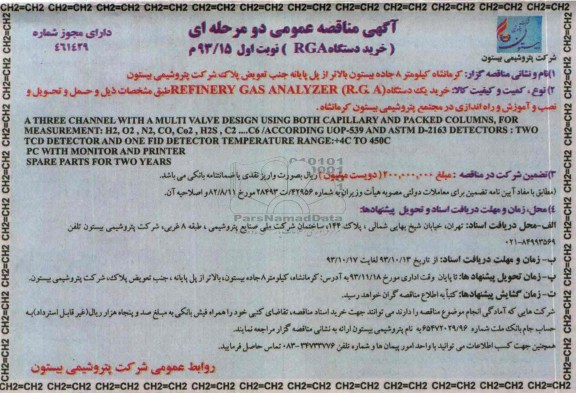 آگهی مناقصه عمومی دو مرحله ای
( خرید دستگاه RGA ) نوبت اول ۹۳/۱۵ م
دارای مجوز شماره
۴۶۱۴۲۹
شرکت پتروشیمی بیستون
۱)نام و نشانی مناقصه گزار: کرمانشاه کیلومتر ۸ جاده بیستون بالاتر از پل پایانه جنب تعویض پلاک شرکت پتروشیمی بیستون
۲) نوع ، کمیت و کیفیت کالا: خرید یک دستگاه REFINERY GAS ANALYZER (R.G. A) طبق مشخصات ذیل و حمل و تحویل و
نصب و آموزش و راه اندازی در مجتمع پتروشیمی بیستون کرمانشاه.
A THREE CHANNEL WITH A MULTI VALVE DESIGN USING BOTH CAPILLARY AND PACKED COLUMNS, FOR
MEASUREMENT: H2, O2 , N2, CO, Co2 , H2S , C2 ....C6 /ACCORDING UOP-539 AND ASTM D-2163 DETECTORS : TWO
TCD DETECTOR AND ONE FID DETECTOR TEMPERATURE RANGE:+4C TO 450C
PC WITH MONITOR AND PRINTER
SPARE PARTS FOR TWO YEARS
۳)تضمین شرکت در مناقصه : مبلغ ۲۰۰,۰۰۰,۰۰۰( دویست میلیون ) ریال بصورت واریز نقدی یا ضمانتنامه بانکی می باشد.
(مطابق با مفاد آیین نامه تضمین برای معاملات دولتی مصوبه هیأت وزیران به شماره ۴۲۹۵۶/ت ۲۸۴۹۳ مورخ ۸۲/۸/۱۱ و اصلاحیه آن.
۴) محل، زمان و مهلت دریافت اسناد و تحویل پیشنهادها:
الف-محل دریافت اسناد: تهران، خیابان شیخ بهایی شمالی ، پلاک ۱۴۴، ساختمان شرکت ملی صنایع پتروشیمی ، طبقه ۸ غربی، شرکت پتروشیمی بیستون تلفن
۰۲۱-۸۴۹۹۳۵۶۹
ب- زمان و مهلت دریافت اسناد: از تاریخ ۹۳/۱۰/۱۳ لغایت ۹۳/۱۰/۱۷
پ- زمان تحویل پیشنهاد ها: تا پایان وقت اداری مورخ ۹۳/۱۱/۱۸ به آدرس: کرمانشاه، کیلومتر ۸ جاده بیستون، بالاتر از پل پایانه ، جنب تعویض پلاک، شرکت پتروشیمی بیستون.
ت- زمان گشایش پیشنهادها: کتباً به اطلاع مناقصه گران خواهد رسید.
شرکت هایی که آمادگی انجام موضوع مناقصه را دارند می توانند جهت خرید اسناد مناقصه، تقاضای کتبی خود را همراه فیش بانکی به مبلغ صد و پنجاه هزار ریال(غیر قابل استرداد)به
حساب جام بانک ملت شماره ۶۵۴۷۲۰۲۹/۹۶ به نام پتروشیمی بیستون ارائه به نشانی مناقصه گزار مراجعه نمایند.
همچنین جهت کسب اطلاعات می توانید با واحد امور پیمان ها و شماره تلفن ۳۴۷۳۳۷۷۶-۰۸۳ تماس حاصل فرمایید.
روابط عمومی شرکت پتروشیمی بیستون
ParsNamadData